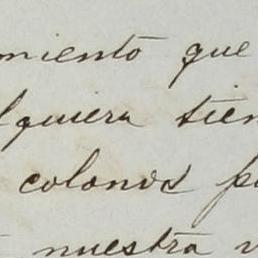 miento que
lquiera tien
colonos p
nuestra v